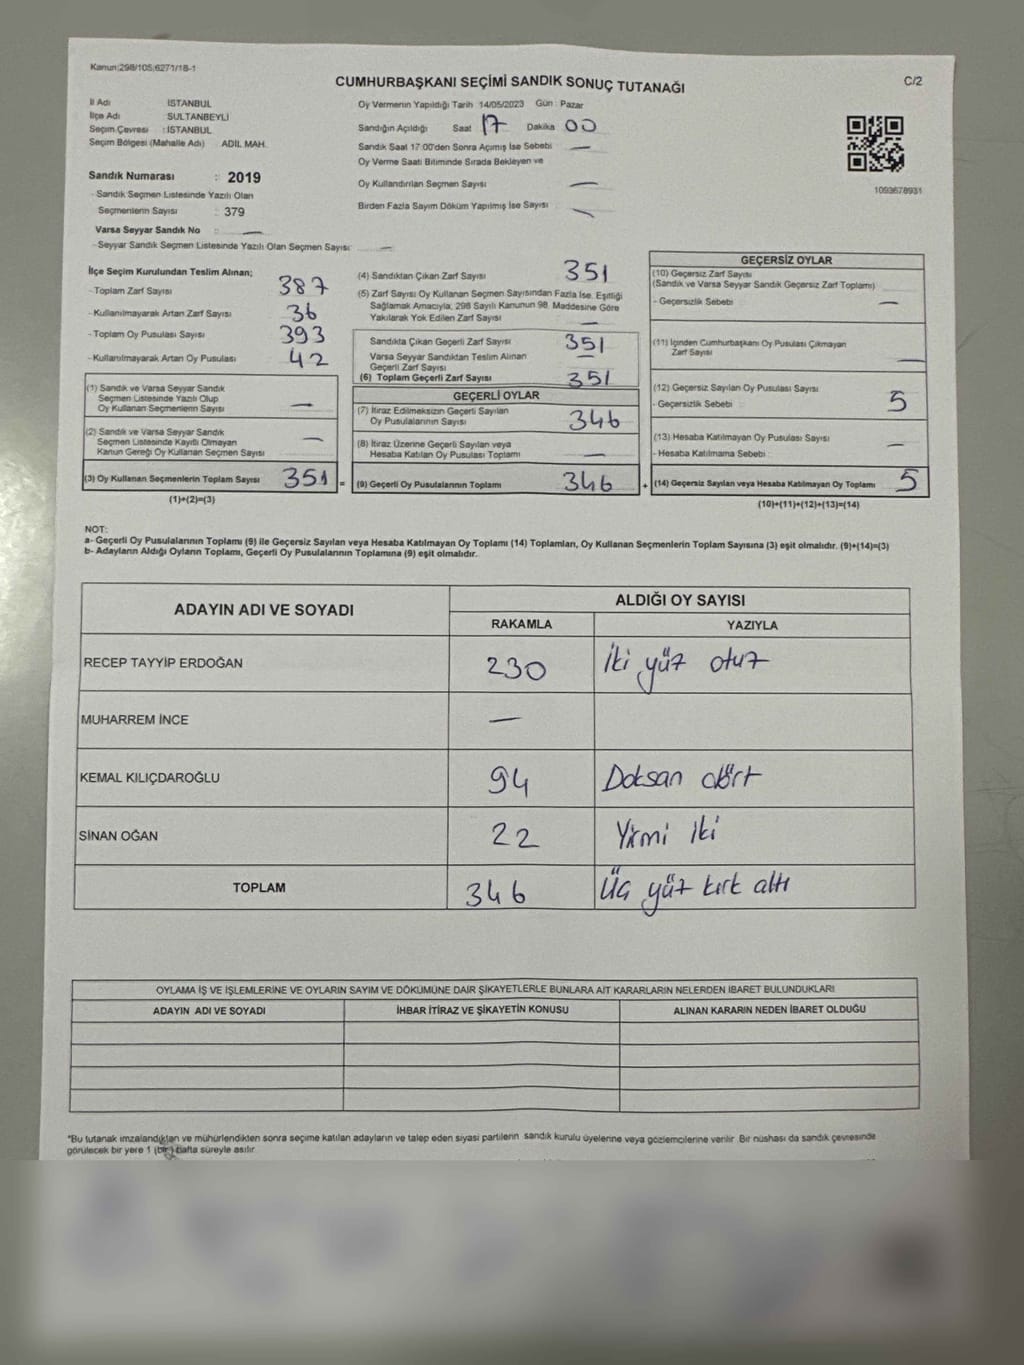 Kanun;298/105;6271/18-1
CUMHURBAŞKANI SEÇİMİ SANDIK SONUÇ TUTANAĞI
C/2
İl Adı İSTANBUL
İlçe Adı SULTANBEYLİ
Seçim Çevresi : İSTANBUL
Seçim Bölgesi (Mahalle Adı) ADİL MAH.
Sandık Numarası : 2019
- Sandık Seçmen Listesinde Yazılı Olan
Seçmenlerin Sayısı : 379
Varsa Seyyar Sandık No : —
- Seyyar Sandık Seçmen Listesinde Yazılı Olan Seçmen Sayısı : —
Oy Vermenin Yapıldığı Tarih 14/05/2023 Gün : Pazar
Sandığın Açıldığı Saat 17 Dakika 00
Sandık Saat 17:00'den Sonra Açımış İse Sebebi —
Oy Verme Saati Bitiminde Sırada Bekleyen ve
Oy Kullandırılan Seçmen Sayısı —
Birden Fazla Sayım Döküm Yapılmış İse Sayısı —
1093678931
İlçe Seçim Kurulundan Teslim Alınan;
- Toplam Zarf Sayısı 387
- Kullanılmayarak Artan Zarf Sayısı 36
- Toplam Oy Pusulası Sayısı 393
- Kullanılmayarak Artan Oy Pusulası 42
(1) Sandık ve Varsa Seyyar Sandık
Seçmen Listesinde Yazılı Olup
Oy Kullanan Seçmenlerin Sayısı —
(2) Sandık ve Varsa Seyyar Sandık
Seçmen Listesinde Kayıtlı Olmayan
Kanun Gereği Oy Kullanan Seçmen Sayısı —
(3) Oy Kullanan Seçmenlerin Toplam Sayısı 351 =
(1)+(2)=(3)
(4) Sandıktan Çıkan Zarf Sayısı 351
(5) Zarf Sayısı Oy Kullanan Seçmen Sayısından Fazla İse, Eşitliği
Sağlamak Amacıyla, 298 Sayılı Kanunun 98. Maddesine Göre
Yakılarak Yok Edilen Zarf Sayısı —
Sandıkta Çıkan Geçerli Zarf Sayısı 351
Varsa Seyyar Sandıktan Teslim Alınan
Geçerli Zarf Sayısı —
(6) Toplam Geçerli Zarf Sayısı 351
GEÇERLİ OYLAR
(7) İtiraz Edilmeksizin Geçerli Sayılan
Oy Pusulalarının Sayısı 346
(8) İtiraz Üzerine Geçerli Sayılan veya
Hesaba Katılan Oy Pusulası Toplamı —
(9) Geçerli Oy Pusulalarının Toplamı 346 +
GEÇERSİZ OYLAR
(10) Geçersiz Zarf Sayısı
(Sandık ve Varsa Seyyar Sandık Geçersiz Zarf Toplamı)
- Geçersizlik Sebebi —
(11) İçinden Cumhurbaşkanı Oy Pusulası Çıkmayan
Zarf Sayısı —
(12) Geçersiz Sayılan Oy Pusulası Sayısı
- Geçersizlik Sebebi : 5
(13) Hesaba Katılmayan Oy Pusulası Sayısı —
- Hesaba Katılmama Sebebi :
(14) Geçersiz Sayılan veya Hesaba Katılmayan Oy Toplamı 5
(10)+(11)+(12)+(13)=(14)
NOT:
a- Geçerli Oy Pusulalarının Toplamı (9) ile Geçersiz Sayılan veya Hesaba Katılmayan Oy Toplamı (14) Toplamları, Oy Kullanan Seçmenlerin Toplam Sayısına (3) eşit olmalıdır. (9)+(14)=(3)
b- Adayların Aldığı Oyların Toplamı, Geçerli Oy Pusulalarının Toplamına (9) eşit olmalıdır.
ADAYIN ADI VE SOYADI
ALDIĞI OY SAYISI
RAKAMLA YAZIYLA
RECEP TAYYİP ERDOĞAN 230 İki yüz otuz
MUHARREM İNCE —
KEMAL KILIÇDAROĞLU 94 Doksan dört
SİNAN OĞAN 22 Yirmi iki
TOPLAM 346 Üç yüz kırk altı
OYLAMA İŞ VE İŞLEMLERİNE VE OYLARIN SAYIM VE DÖKÜMÜNE DAİR ŞİKAYETLERLE BUNLARA AİT KARARLARIN NELERDEN İBARET BULUNDUKLARI
ADAYIN ADI VE SOYADI İHBAR İTİRAZ VE ŞİKAYETİN KONUSU ALINAN KARARIN NEDEN İBARET OLDUĞU
*Bu tutanak imzalandıktan ve mühürlendikten sonra seçime katılan adayların ve talep eden siyasi partilerin sandık kurulu üyelerine veya gözlemcilerine verilir. Bir nüshası da sandık çevresinde
görülecek bir yere 1 (bir) hafta süreyle asılır.